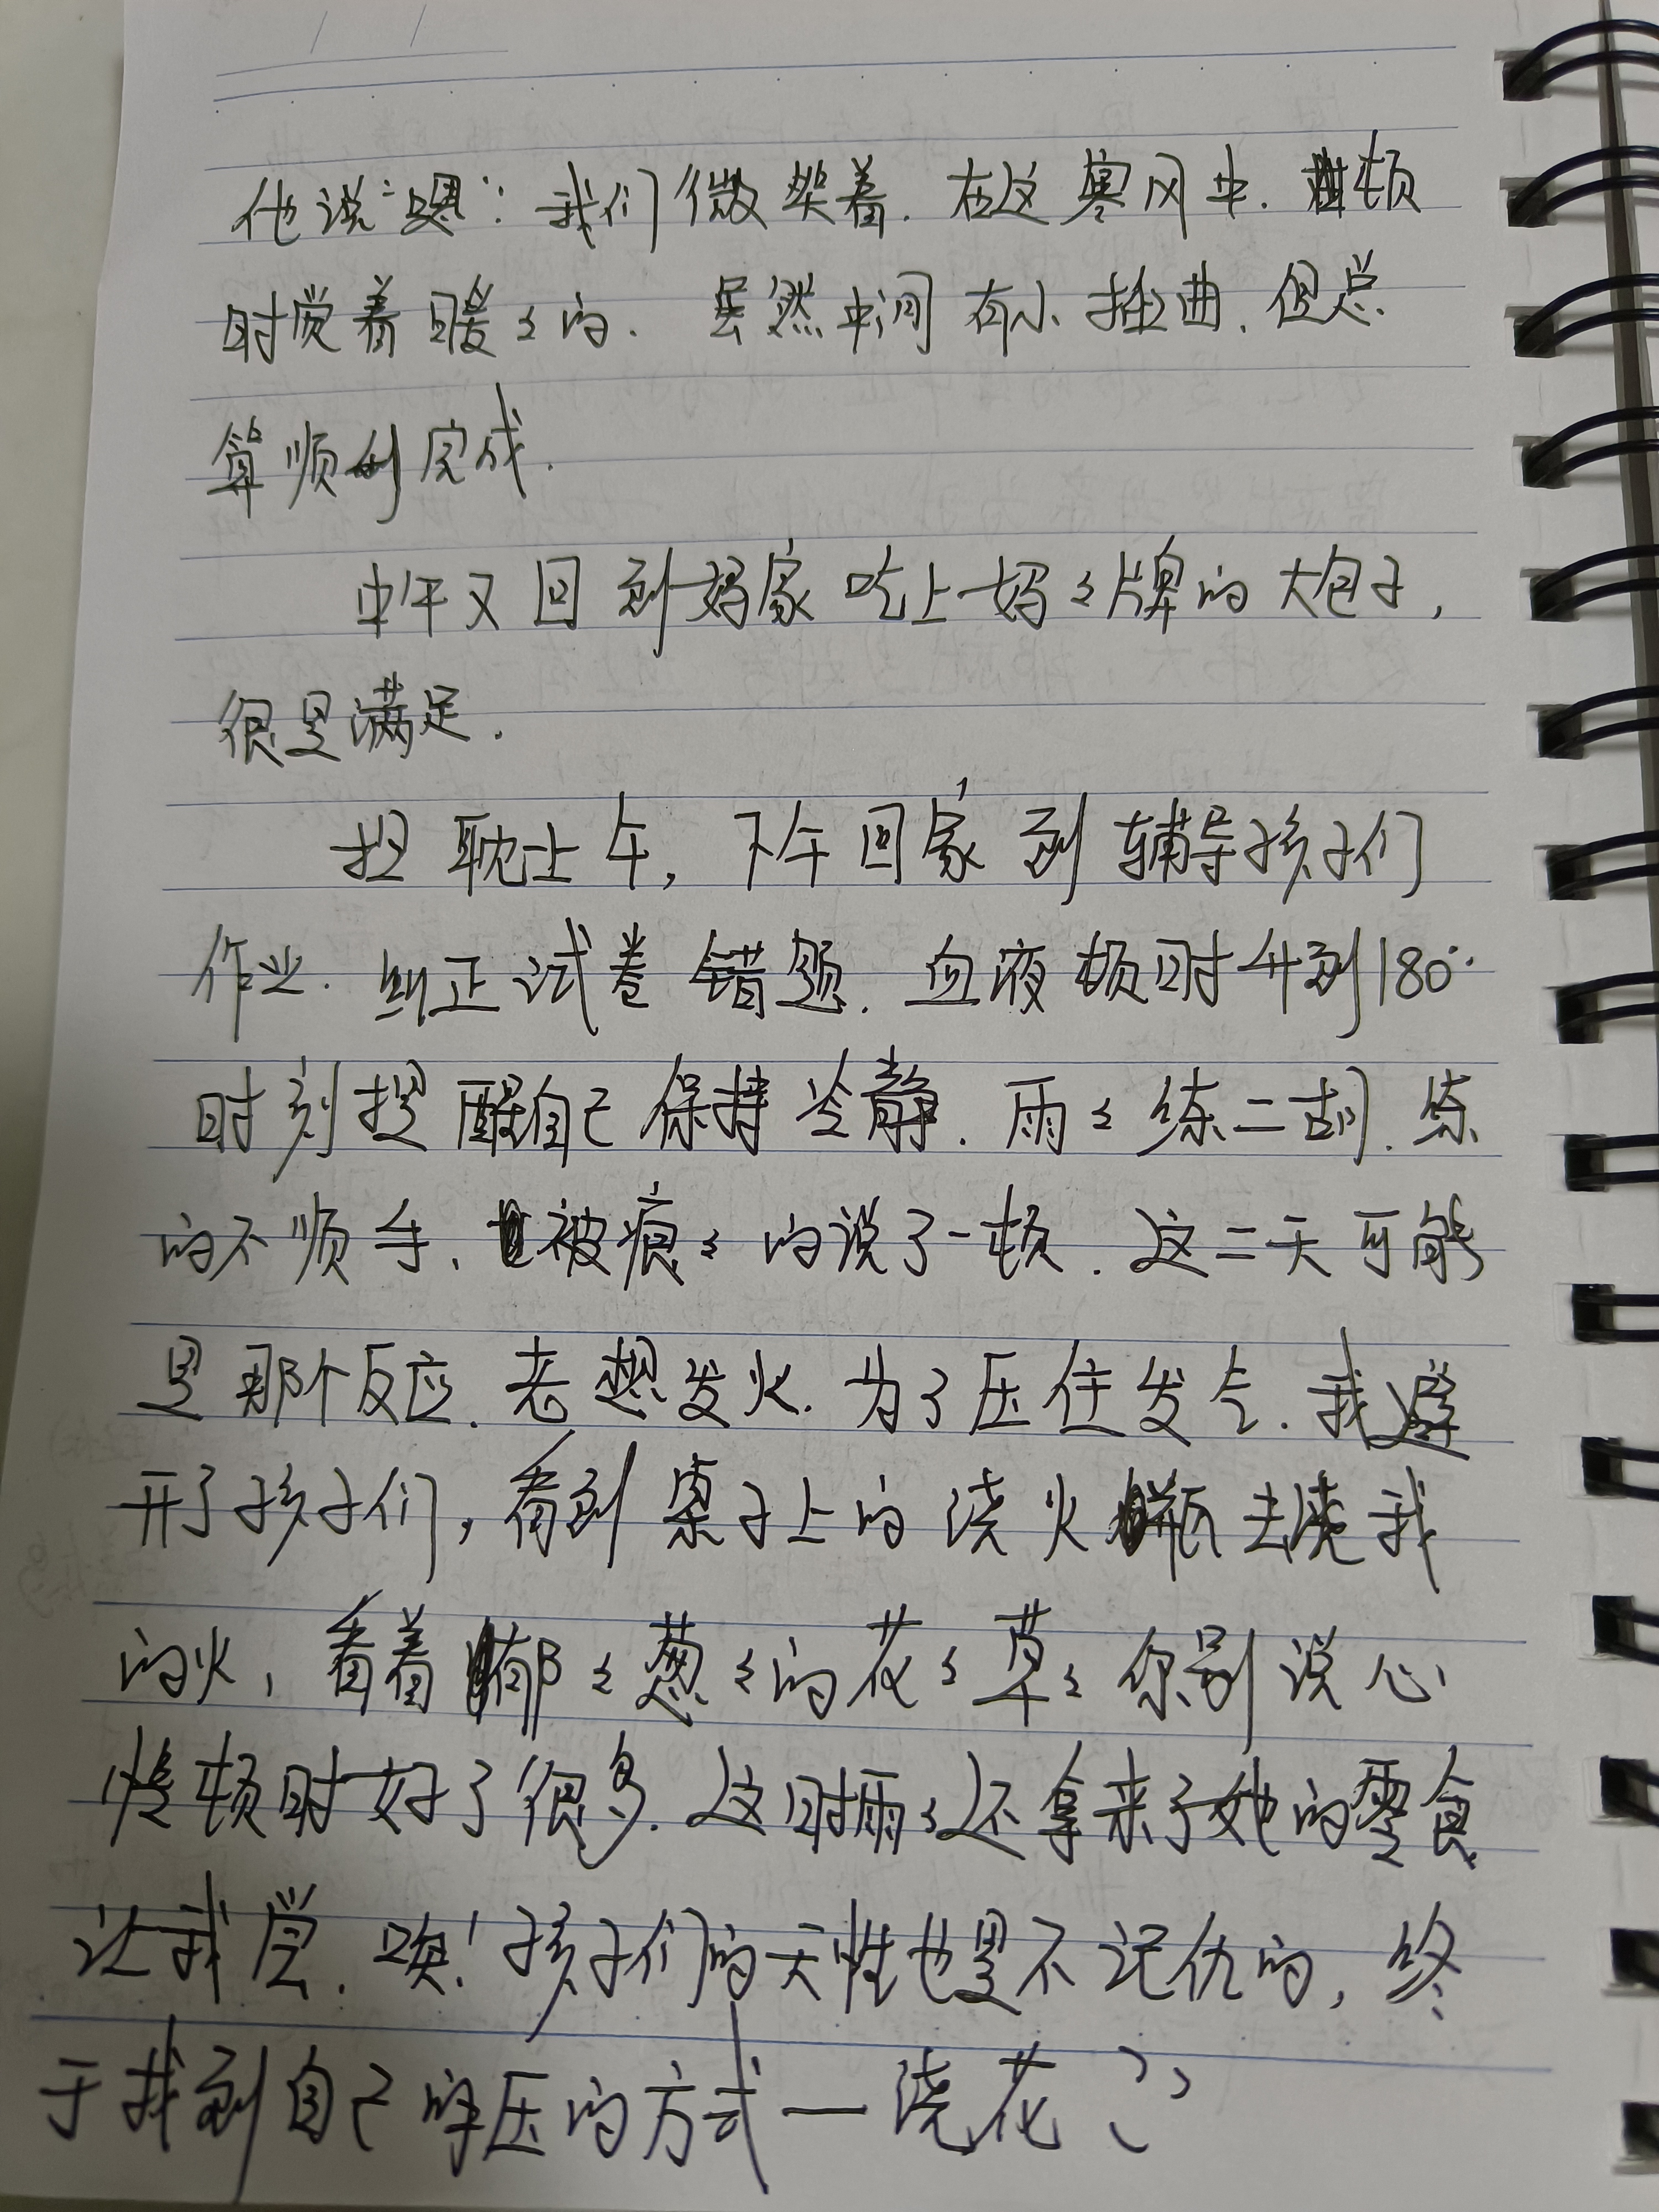 他说“嗯”. 我们微笑着. 在这寒风中. 顿
时觉着暖々的. 虽然中间有小插曲. 但总
算顺利完成.
中午又回到妈家吃上妈々牌的大包子,
很是满足.
担耽上午, 下午回家到辅导孩子们
作业. 纠正试卷错题. 血液顿时升到180°.
时刻提醒自己保持冷静. 雨々练二胡. 练
的不顺手、被痕々的说了一顿. 这二天可能
是那个反应. 老想发火. 为了压住发气. 我避
开了孩子们, 看到桌子上的浇火瓶去浇我
的火, 看着郁々葱々的花々草々你别说心
情顿时好了很多. 这时雨々还拿来了她的零食
让我尝. 唉! 孩子们的天性也是不记仇的, 终
于找到自己解压的方式—浇花